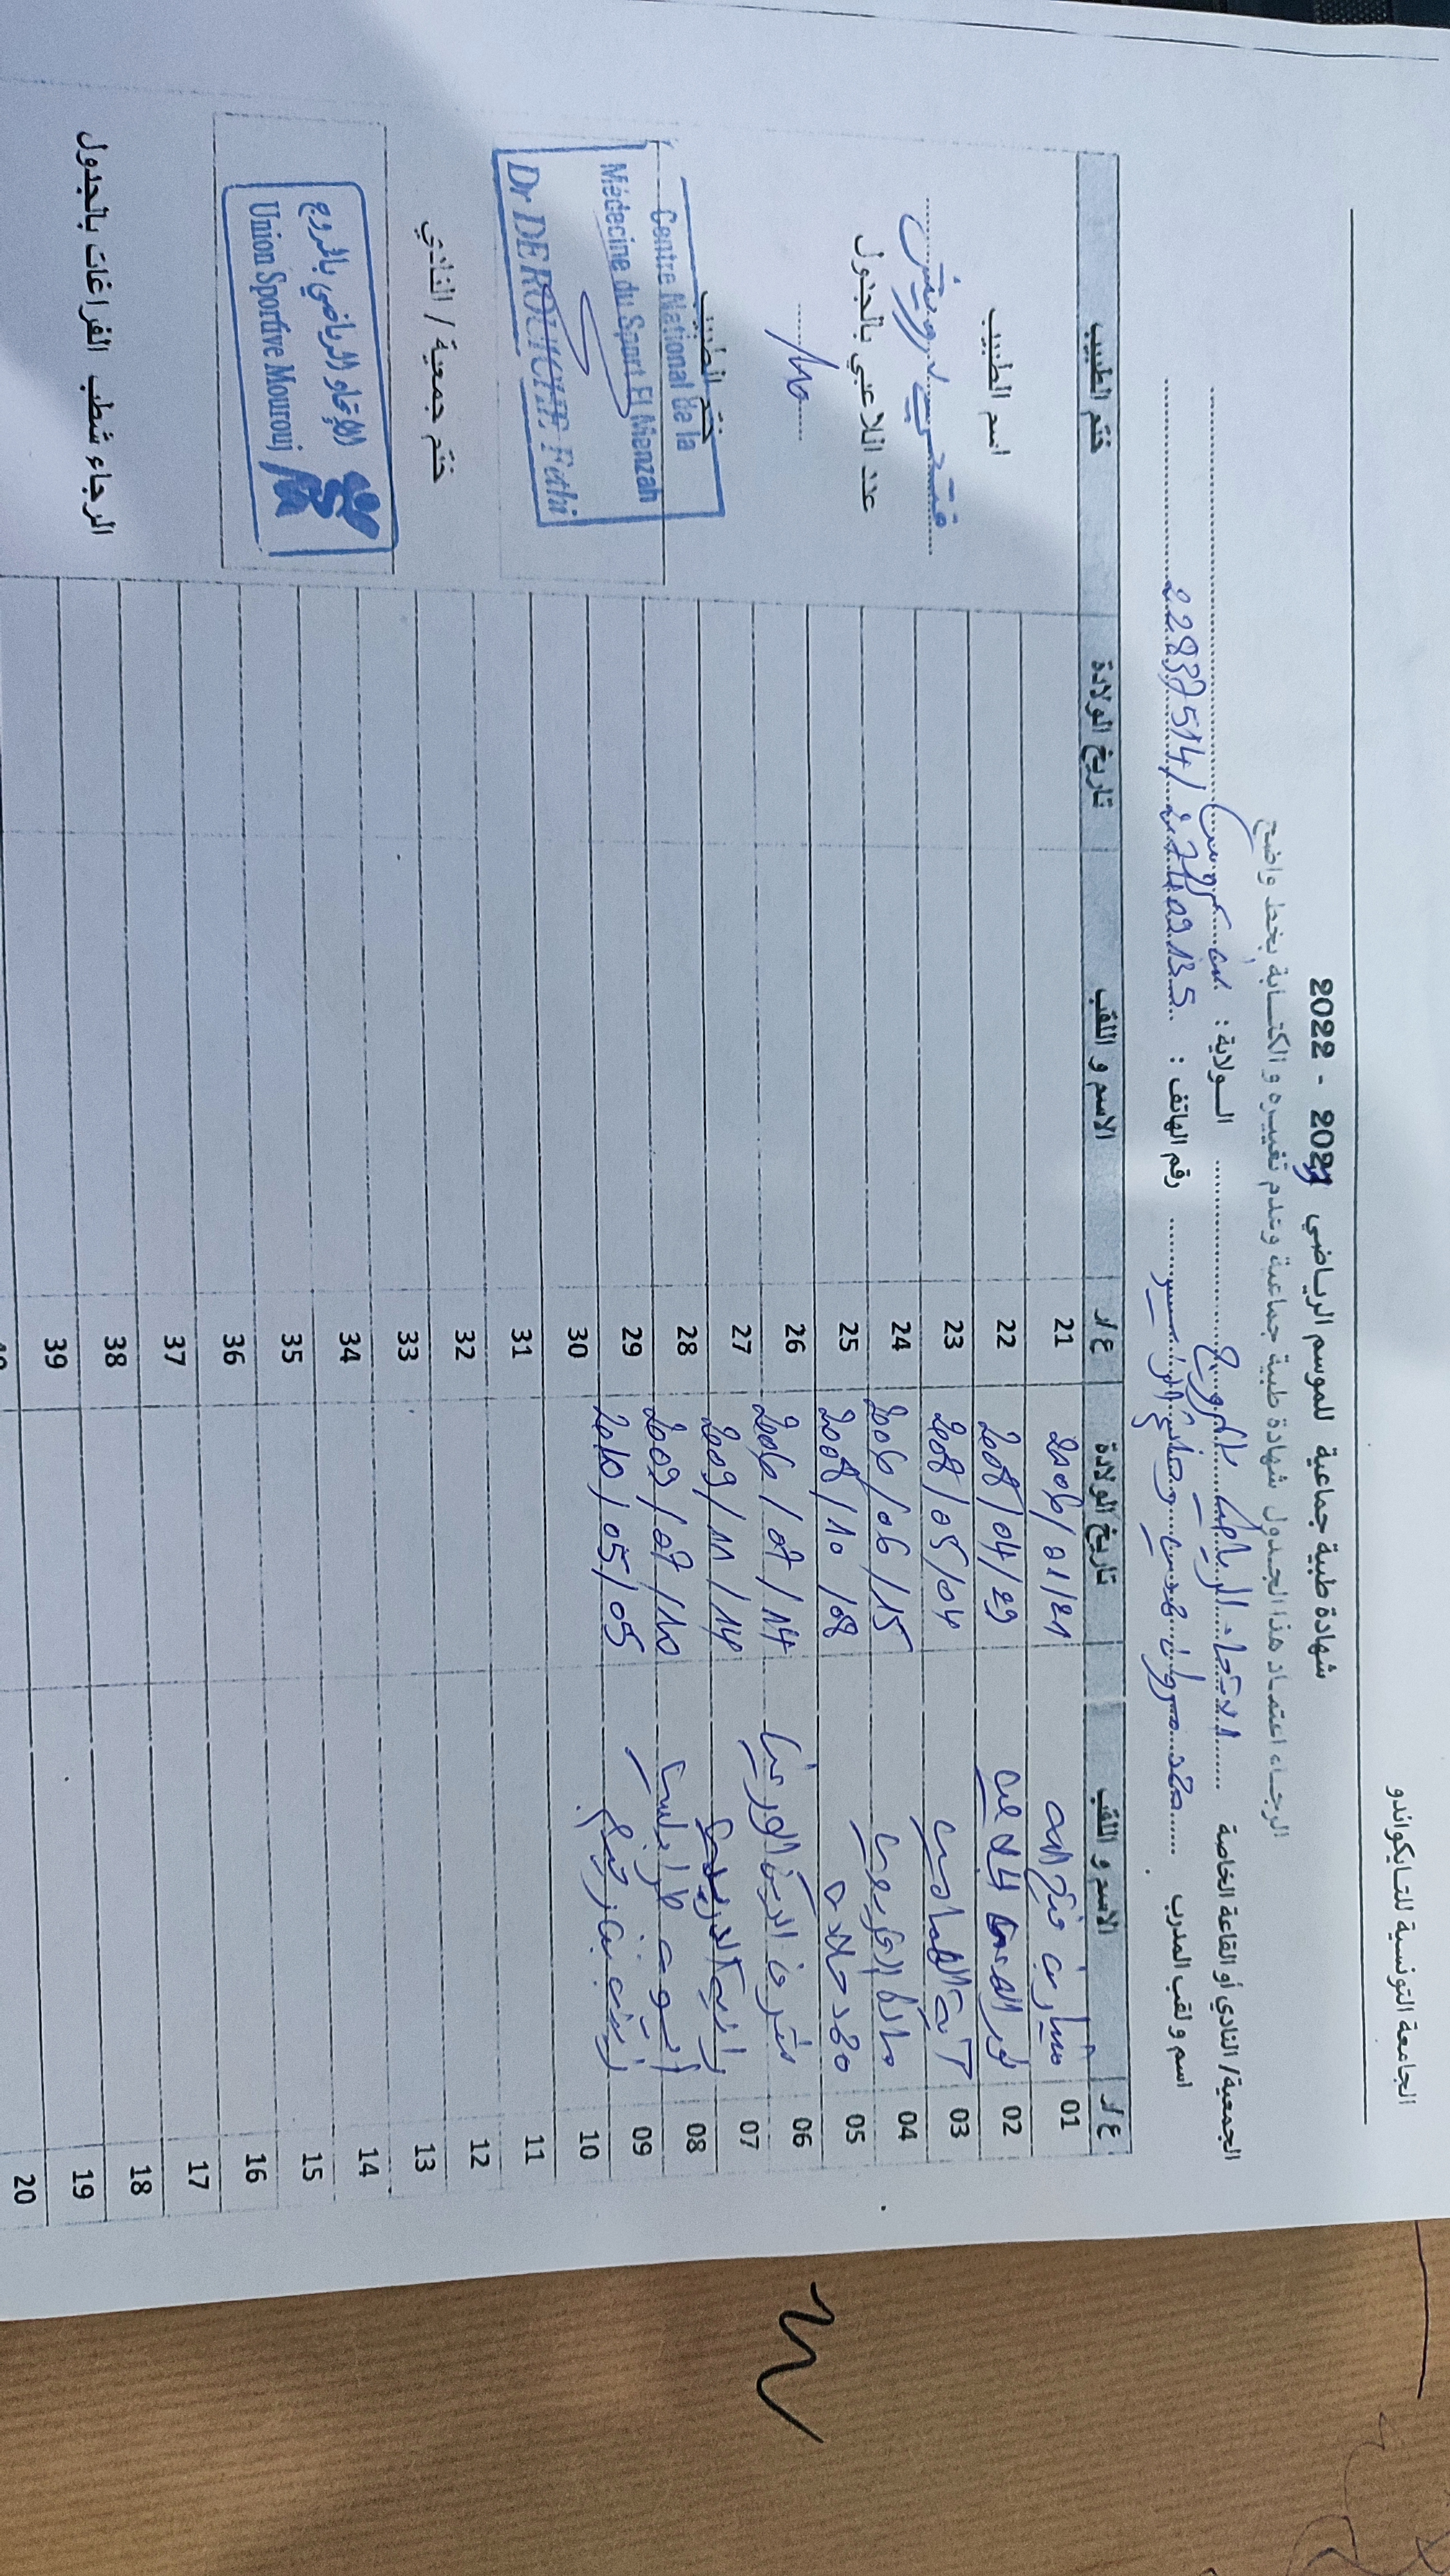 الجامعة التونسية للتايكواندو
شهادة طبية جماعية للموسم الرياضي 2021 - 2022
الرجاء اعتماد هذا الجدول شهادة طبية جماعية وعدم تغييره و الكتابة بخط واضح
الجمعية/ النادي أو القاعة الخاصة ..... الاتحاد الرياضي بالمروج ..... الولاية : بن عروس
اسم و لقب المدرب ..... محمد مروان بن ..... رقم الهاتف :
ع/ر الاسم و اللقب تاريخ الولادة ع/ر الاسم و اللقب تاريخ الولادة ختم الطبيب
01 فتح الله 2006/01/21 21
02 نور 2008/04/29 22
03 آية الهمامي 2008/05/04 23
04 2006/06/15 24
05 محمد 2008/10/08 25
06 2006/07/14 26
07 رانية الدريدي 2009/11/14 27
08 طرابلسي 2009/07/10 28
09 زينب 2010/05/05 29
10 30
11 31
12 32
13 33
14 34
15 35
16 36
17 37
18 38
19 39
20 40
اسم الطبيب
فتحي درويش
عدد اللاعبي بالجدول
ختم الطبيب
Centre National de la
Médecine du Sport El Menzah
Dr DEROUICHE Fathi
ختم جمعية / النادي
الإتحاد الرياضي بالمروج
Union Sportive Mourouj
الرجاء شطب الفراغات بالجدول